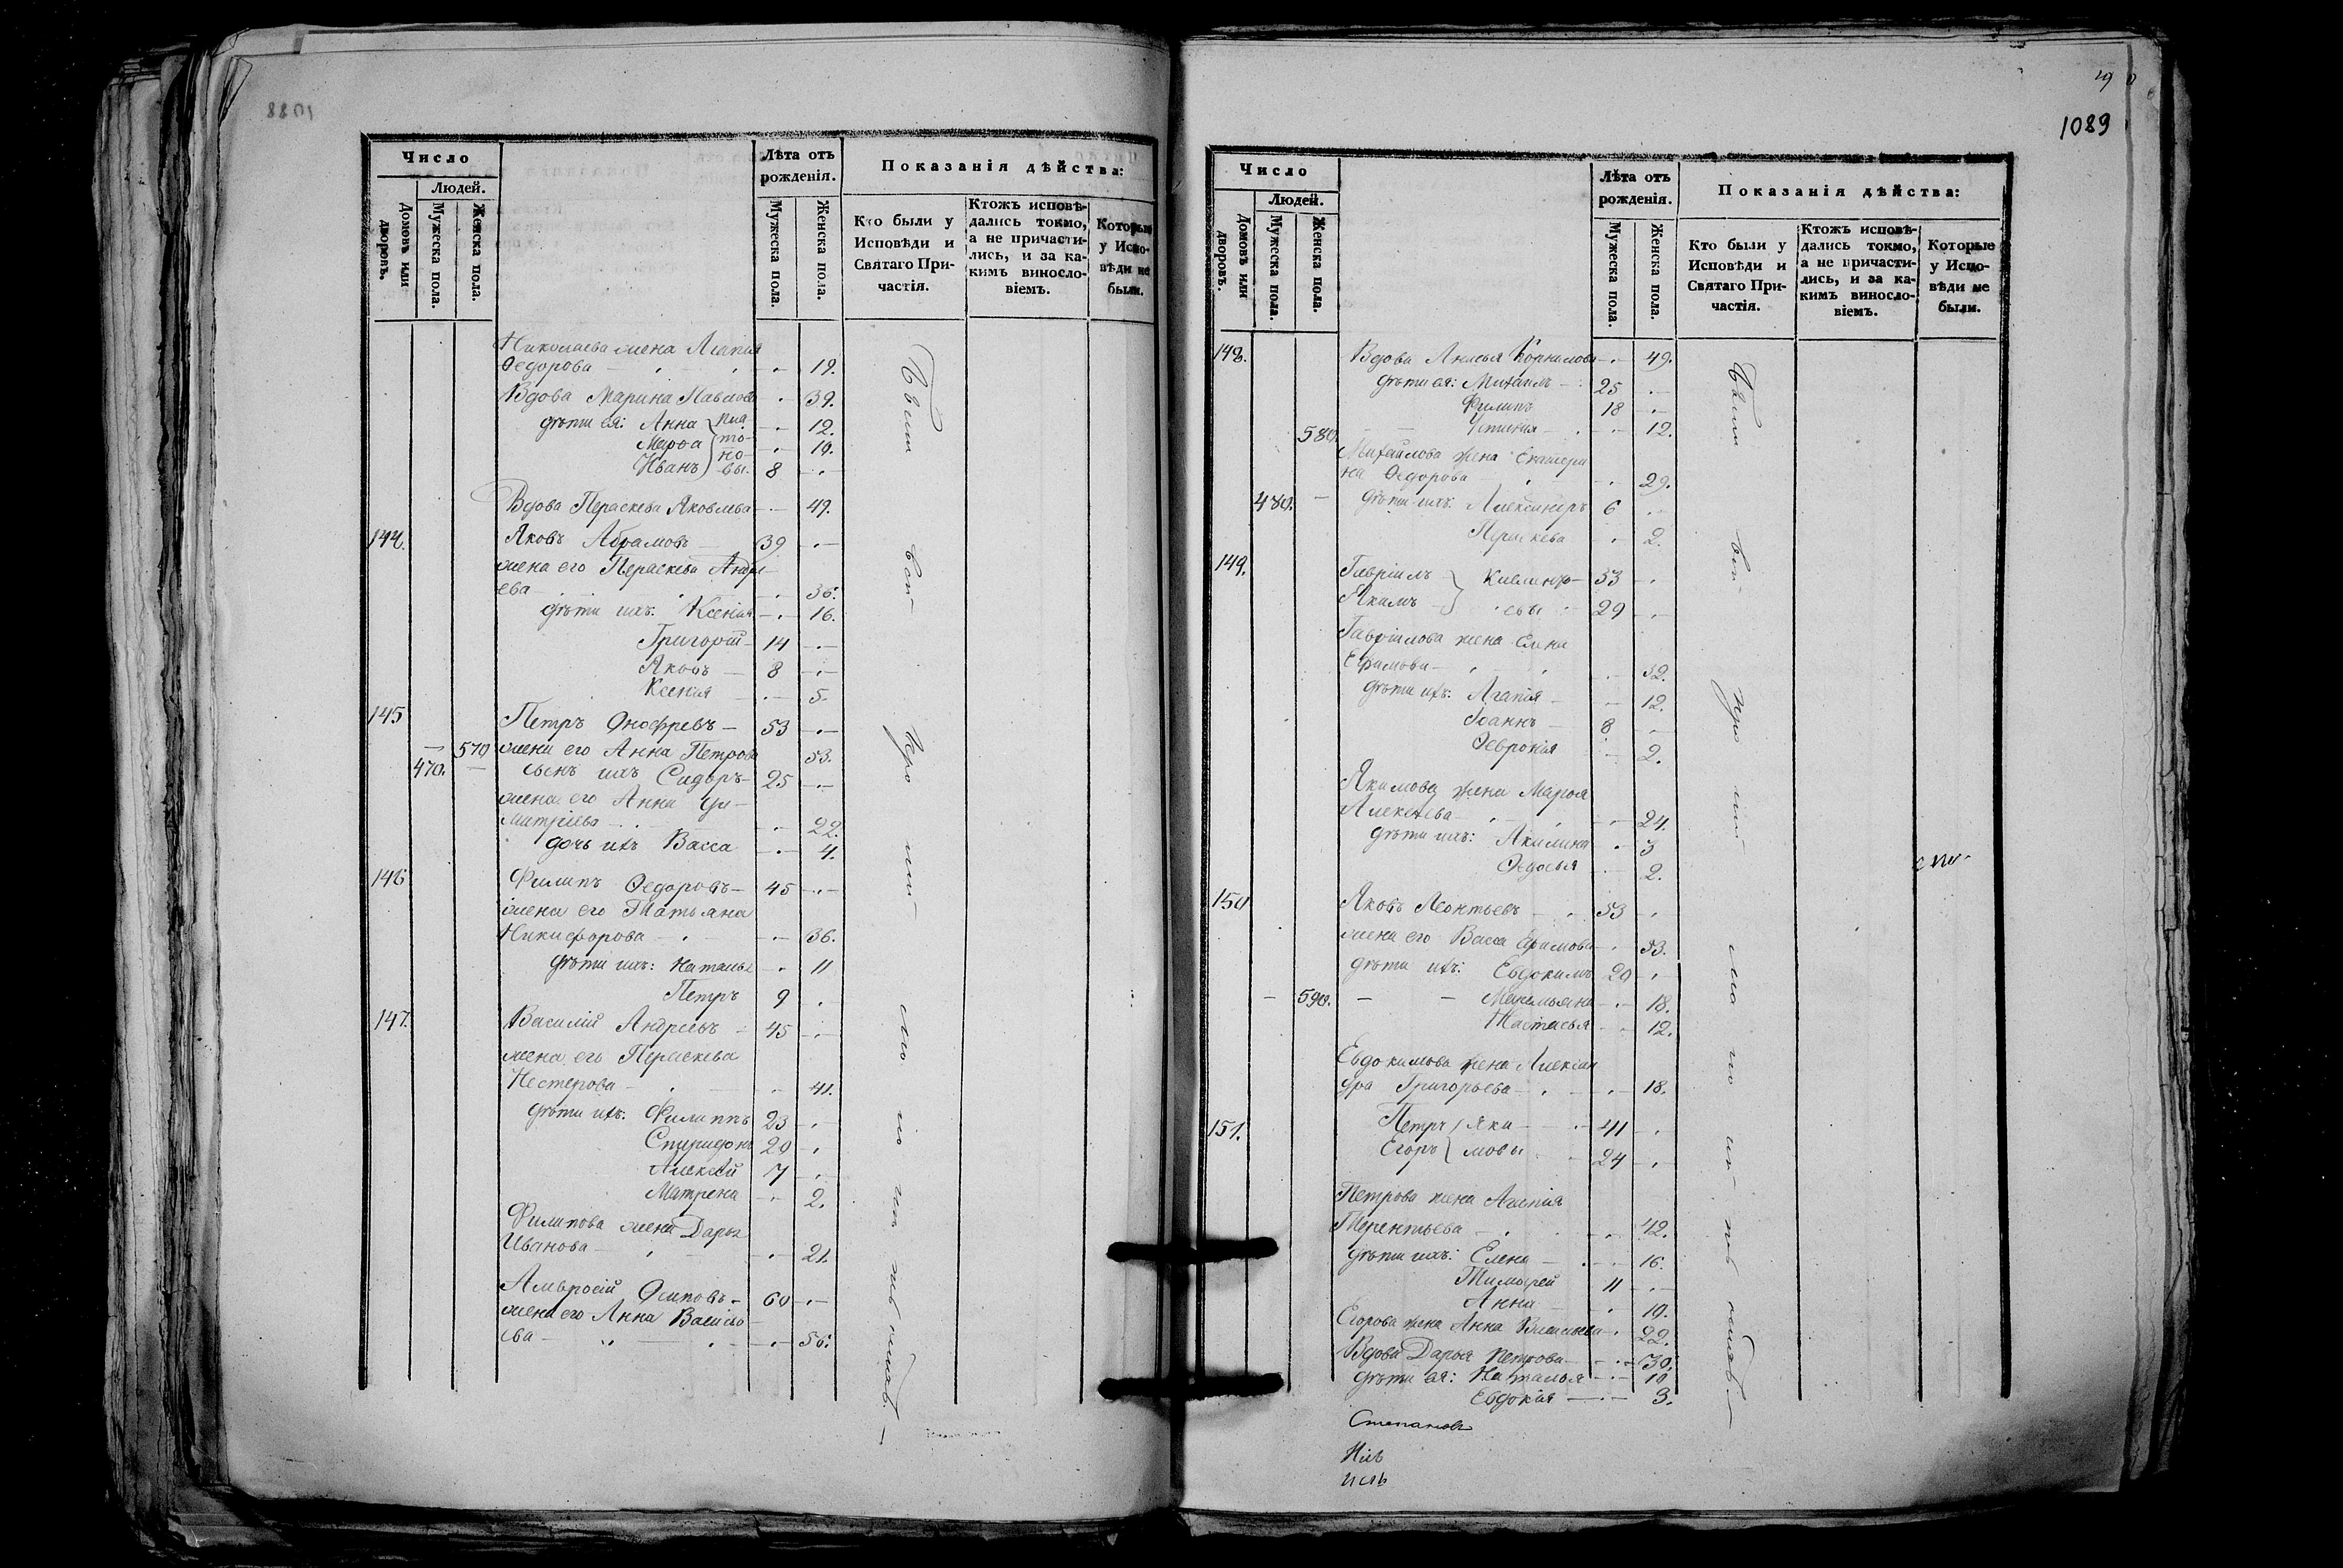 1088
Число
Людей.
Домовъ или дворовъ.
Мужеска пола.
Женска пола.
Лѣта отъ рожденія.
Мужеска пола.
Женска пола.
Показанія дѣйства:
Кто были у Исповѣди и Святаго Причастія.
Ктожъ исповѣдались токмо, а не причастились, и за какимъ винословіемъ.
Которые у Исповѣди не были.
Николаева жена Агапія
Федорова 19.
Вдова Марина Павлова 39.
дѣти ея: Анна Пла 12.
Марфа то- 10.
Иванъ но- вы. 8
Вдова Параскева Яковлева 49.
144. Яковъ Абрамовъ 39
жена его Параскева Андре
ева 36.
дѣти ихъ: Ксенія 16.
Григорій 14
Яковъ 8
Ксенія 5.
145 Петръ Онофревъ 53
570 жена его Анна Петрова 53.
470. сынъ ихъ Сидоръ 25
жена его Анна Ди-
митріева 22.
дочь ихъ Васса 4.
146 Филипъ Федоровъ 45
жена его Татьяна
Никифорова 36.
дѣти ихъ: Наталья 11
Петръ 9
147. Василій Андреевъ 45
жена его Параскева
Нестерова 41.
дѣти ихъ: Филиппъ 23
Спиридонъ 20
Алексѣй 7
Матрена 2.
Филипова жена Дарья
Иванова 21.
Амвросій Осиповъ 60
жена его Анна Василь
ева 56.
1089
Число
Людей.
Домовъ или дворовъ.
Мужеска пола.
Женска пола.
Лѣта отъ рожденія.
Мужеска пола.
Женска пола.
Показанія дѣйства:
Кто были у Исповѣди и Святаго Причастія.
Ктожъ исповѣдались токмо, а не причастились, и за какимъ винословіемъ.
Которые у Исповѣди не были.
148. Вдова Анисья Корнилова 49.
дѣти ея: Михаилъ 25
Филипъ 18
580. Устинія 12.
Михайлова жена Екатери
на Федорова 29.
480. дѣти ихъ: Александръ 6
Параскева 2.
149. Гавріилъ Калинни- 33
Якимъ 29
Гавріилова жена Елена
Ефимова 32.
дѣти ихъ: Агапія 12.
Іоаннъ 8
Февронія 2.
Якимова жена Марфа
Алексѣева 24.
дѣти ихъ: Акилина 3
Федосья 2.
150 Яковъ Леонтьевъ 53
жена его Васса Ефимова 53.
дѣти ихъ: Евдокимъ 20
590. 18.
Настасья 12.
Евдокимова жена Алексан
дра Григорьева 18.
151. Петръ Яки- 41
Егоръ мовы 24
Петрова жена Агапія
Терентьева 42.
дѣти ихъ: Елена 16.
Тимофей 11
Анна 10.
Егорова жена Анна Васильева 22.
Вдова Дарья Петрова 30.
дѣти ея: Наталья 10
Евдокія 3.
Степановъ